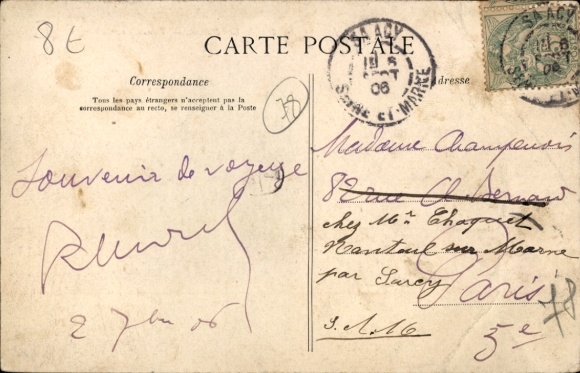 8t
CARTE POSTALE
Correspondance
Tous les pays étrangers n'acceptent pas la
correspondance au recto, se renseigner à la Poste
78
SAACY
6
SEPT
06
SEINE-ET-MARNE
SAACY
6
06
dresse
Souvenir de voyage
2 7bre 06
Madame Champenois
82 rue Cl Bernard
chez Mr Choquet
Nanteuil sur Marne
par Sarcy
Paris
S.-M.
5e
78